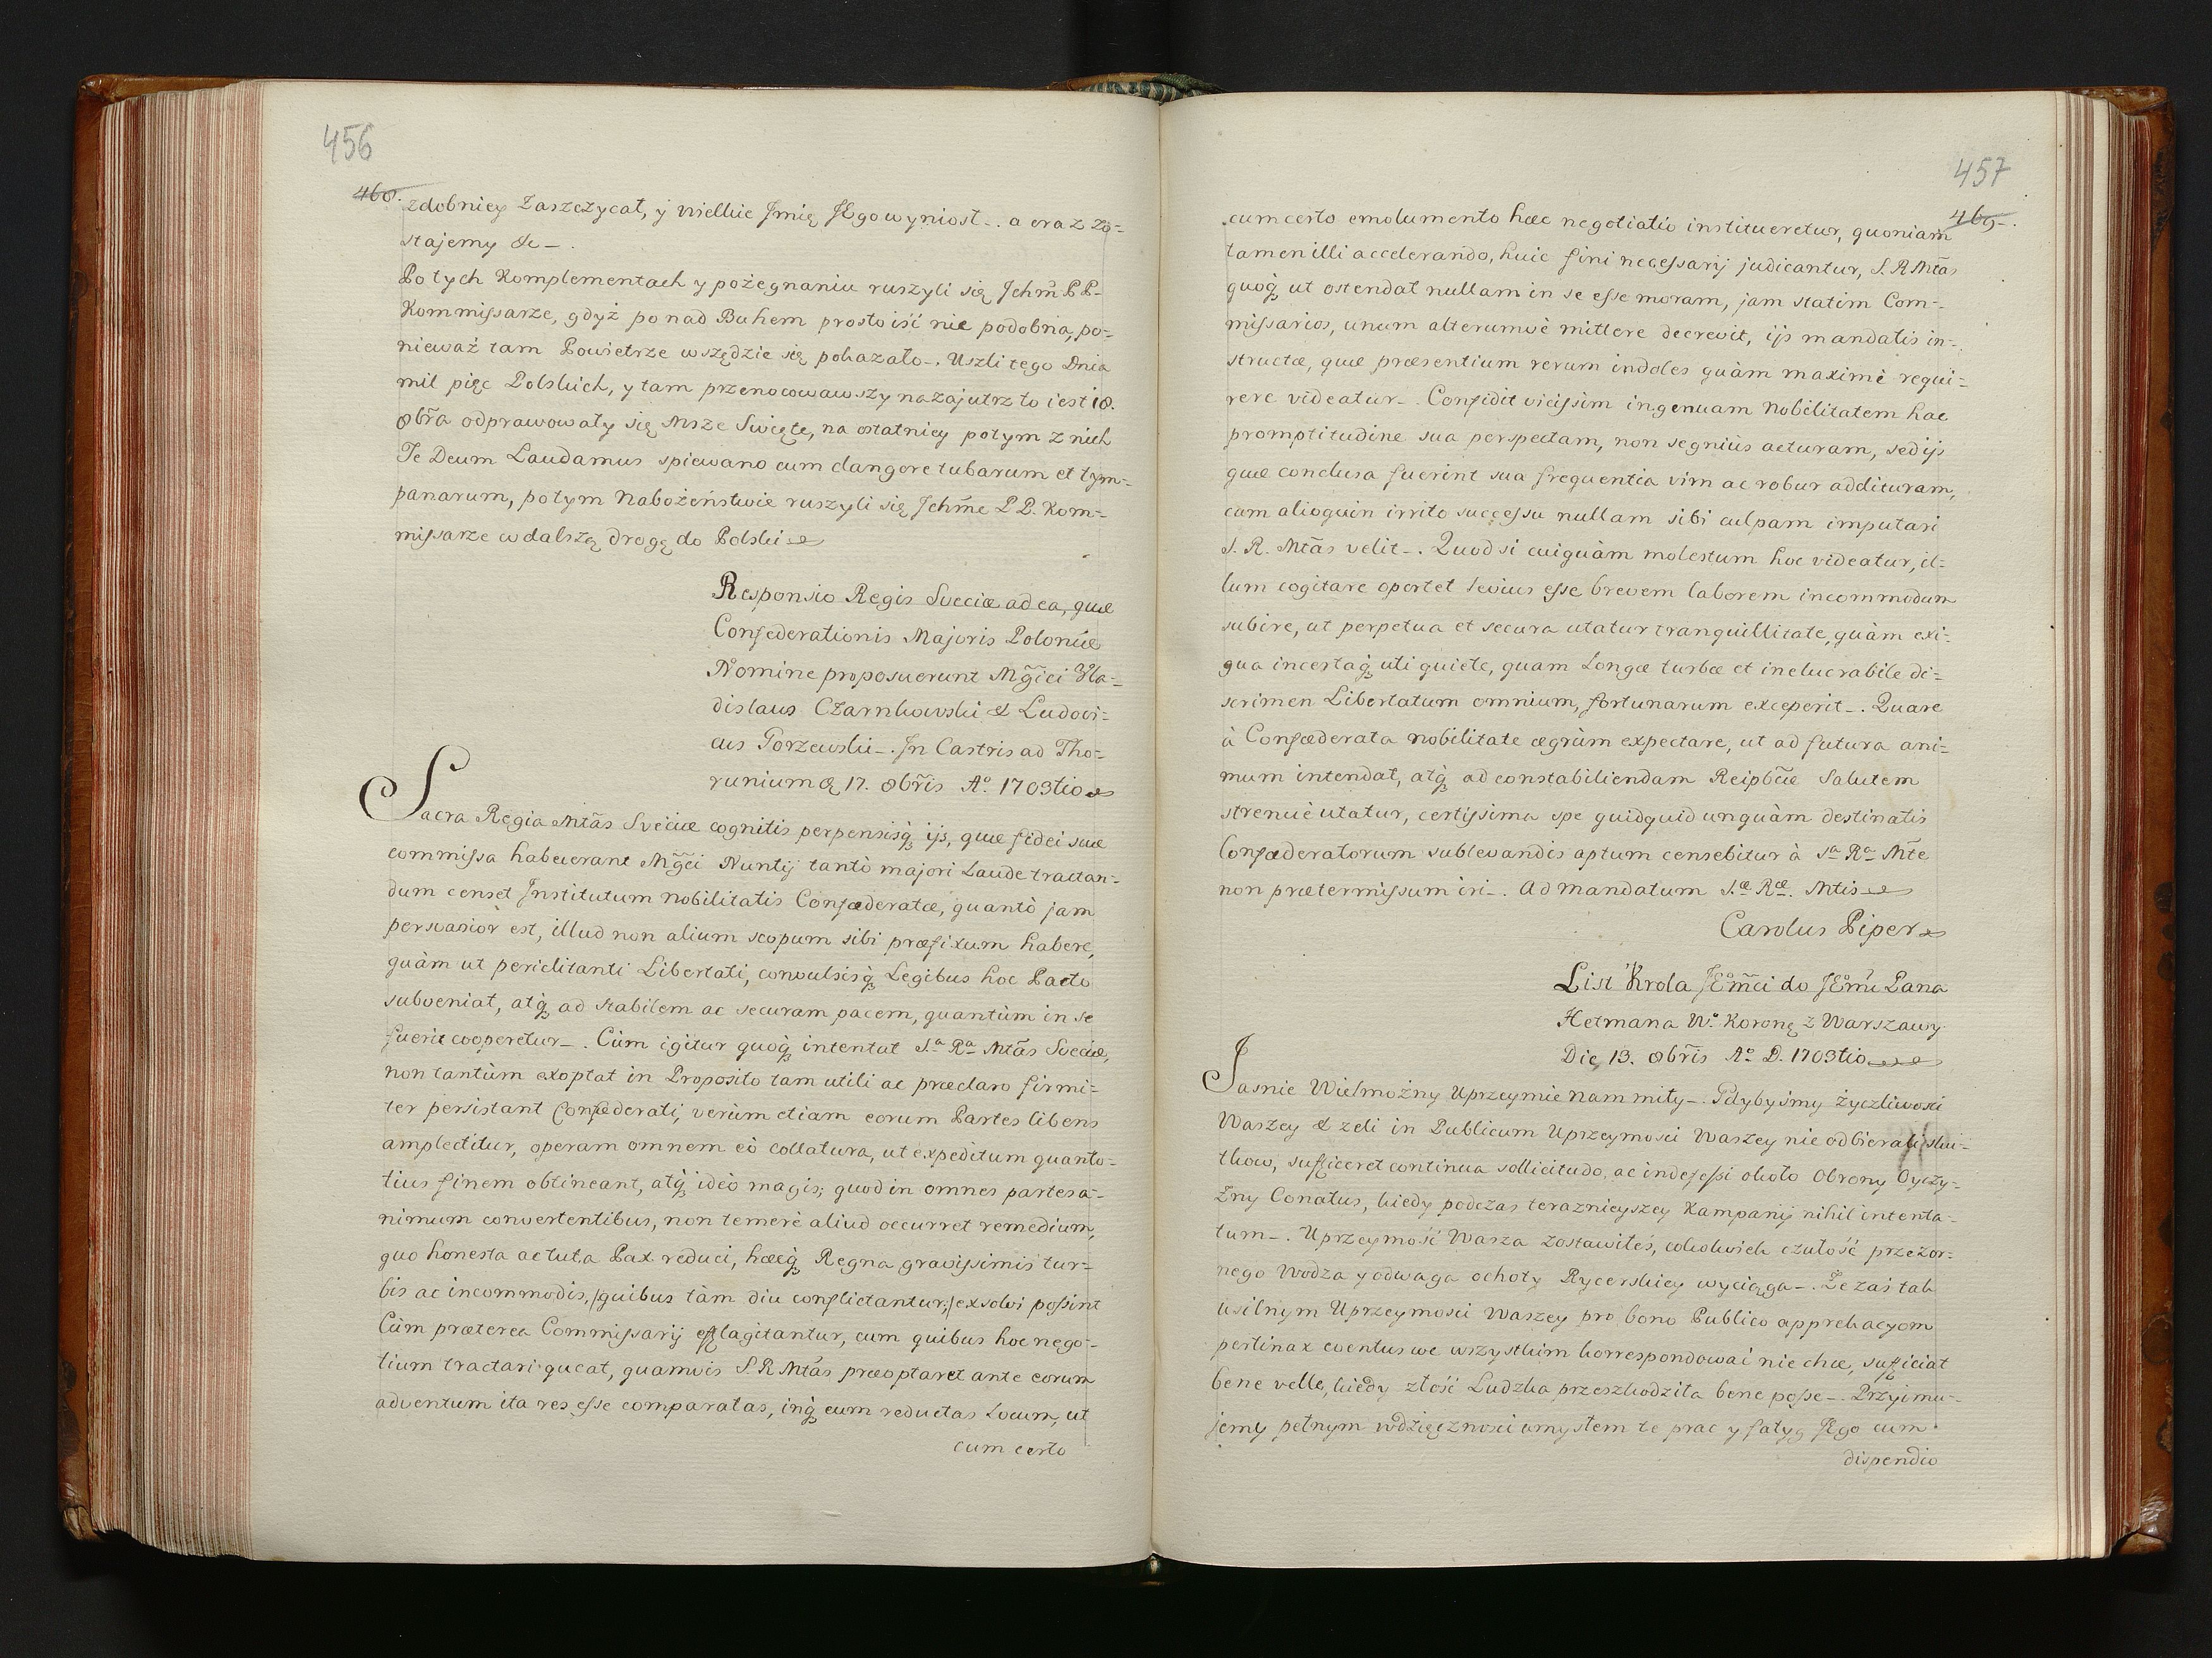 456
468.
zdobniey Zaszczycał, y wielkie Jmię JEgo wyniosł_. a oraz zo=
stajemy &_.
Po tych Komplementach y pożegnaniu ruszyli się Jchm̃ PP=
Kommissarze, gdyż ponad Buhem prosto iść nie podobna, po=
nieważ tam Powietrze wszędzie się pokazało_. Uszli tego Dnia
mil pięc Polskich, y tam przenocowawszy nazajutrz to iest 18.
8br̃a odprawowały się Msze Swięte, na ostatniey potym z nich
Te Deum Laudamus spiewano cum clangore tubarum et tym=
panarum, potym Nabożeństwie ruszyli się Jchm̃e PP. Kom=
missarze w dalszą drogę do Polski
Responsio Regis Sveciæ ad ea, quæ
Confederationis Majoris Poloniæ
Nomine proposuerunt Mg̃ici Vla=
dislaus Czarnkowski & Ludovi=
cus Gorzewski_. Jn Castris ad Tho=
runium D. 17. 8br̃is Aº. 1703tio
Sacra Regia Mtãs Sveciæ cognitis perpensisq̨ ijs, quæ fidei suæ
commissa habuerant Mg̃ci Nuntij tantò majori Laude tractan=
dum censet Jnstitutum nobilitatis Confæderatæ, quantò jam
persvasior est, illud non alium scopum sibi præfixum habere,
quàm ut periclitanti Libertati, convulsisq̨ Legibus hoc Pacto
subveniat, atq̨ ad stabilem ac securam pacem, quantùm in se
fuerit cooperetur_. Cùm igitur quoq̨ intentat Sª Rª Mtãs Sveciæ,
non tantùm exoptat in Proposito tam utili ac præclaro firmi=
ter persistant Confæderati, verùm etiam eorum Partes libens
amplectitur, operam omnem eò collatura, ut expeditum quanto=
tius finem obtineant, atq̨ ideò magis; quod in omnes partes a=
nimum convertentibus, non temerè aliud occurret remedium,
quo honesta ac tuta Pax reduci, hæcq̨ Regna gravissimis tur=
bis ac incommodis, /quibus tàm diu conflictantur;/ exsolvi possint
Cùm præterea Commissarij efflagitantur, cum quibus hoc nego=
tium tractari queat, quamvis S. R Mtãs præoptaret ante eorum
adventum ita res esse comparatas, inq̨ eum reductas Locum, ut
cum certo
457
469.
cum certo emolumento hæc negotiatio institueretur, quoniam
tamen illi accelerando, huic fini necessarij judicantur, S. R Mtãs
quoq̨ ut ostendat nullam in se esse moram, jam statim Com=
missarios, unum alterumvè mittere decrevit, ijs mandatis in=
structæ, quæ præsentium rerum indoles quàm maximè requi=
rere videatur_. Confidit vicissim ingenuam nobilitatem hac
promptitudine sua perspectam, non segniùs acturam, sed ijs
quæ conclusa fuerint sua frequentia vim ac robur addituram,
cum alioquin irrito successu nullam sibi culpam imputari
S. R. Mtãs velit_. Quod si cuiquàm molestum hoc videatur, il=
lum cogitare oportet levius esse brevem laborem incommodum
subire, ut perpetua et secura utatur tranquillitate, quàm exi=
gua incertaq̨ uti quiete, quam Longæ turbæ et ineluctabile di=
scrimen Libertatum omnium, fortunarum exceperit_. Quare
à Confæderata nobilitate ægrùm expectare, ut ad futura ani=
mum intendat, atq̨ ad constabiliendam Reipbcæ Salutem
strenuè utatur, certissima spe quidquid unquàm destinatis
Confæderatorum sublevandis aptum censebitur à Sª Rª Mte
non prætermissum iri_. Ad mandatum S.æ Ræ. Mtis
Carolus Piper
List Krola JEm̃ci do JEmú Pana
Hetmana Wº Koronẹ z Warszawy
Die 13. 8br̃is Aº D. 1703tio
Jasnie Wielmożny Uprzeymie nam miły_. Gdybyśmy życzliwości
Waszey & zeli in Publicum Uprzeymosci Waszey nie odbierali sku=
tkow, sufficeret continua sollicitudo, ac indefessi około Obrony Oyczy=
zny Conatus, kiedy podczas terazniejszey Kampanij nihil intenta=
tum_. Uprzeymość Wasza zostawiłeś, cokolwiek czułość przezor=
nego Wodza y odwaga ochoty Rycerskiey wyciąga_. Ze zaś tak
usilnym Uprzeymosci Waszey pro bono Publico apprekacyom
pertinax eventus we wszystkim korrespondować nie chce, sufficiat
bene velle, kiedy złość Ludzka przeszkodziła bene posse_. Przyimu=
jemy pełnym wdzięczności umysłem te prac y fatyg JEgo cum
dispendio